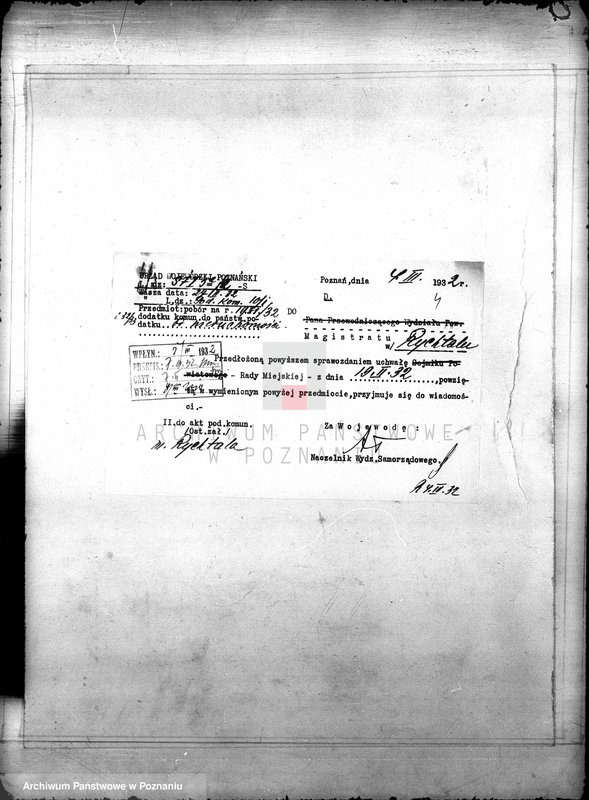 URZĄD WOJEWÓDZKI POZNAŃSKI
L.dz: -S
Wasza data: 24.II.32
L.dz.: Pod. kom. 10/1
Przedmiot: pobór na r. 1931/32
i 32/3 dodatku komun.do państw.po-
datku..
Poznań,dnia 4 III 1932 r.
D.
4
DO
Pana Przewodniczącego Wydziału Pow.
Magistratu
w/ Rychtalu
WPŁYN.: 1932
PRZEPIS.:
CZYT.:
WYSŁ.:
Przedłożoną powyższem sprawozdaniem uchwałę Sejmiku Po-
wiatowego - Rady Miejskiej - z dnia 19.II.32 ,powzię-
tą w wymienionym powyżej przedmiocie,przyjmuje się do wiadomoś-
ci.-
II.do akt pod.komun.
/Ost.zał./
m. Rychtala
Za Wojewodę:
Naczelnik Wydz.Samorządowego.
4.III.32
ARCHIWUM PAŃSTWOWE
W POZNANIU
Archiwum Państwowe w Poznaniu